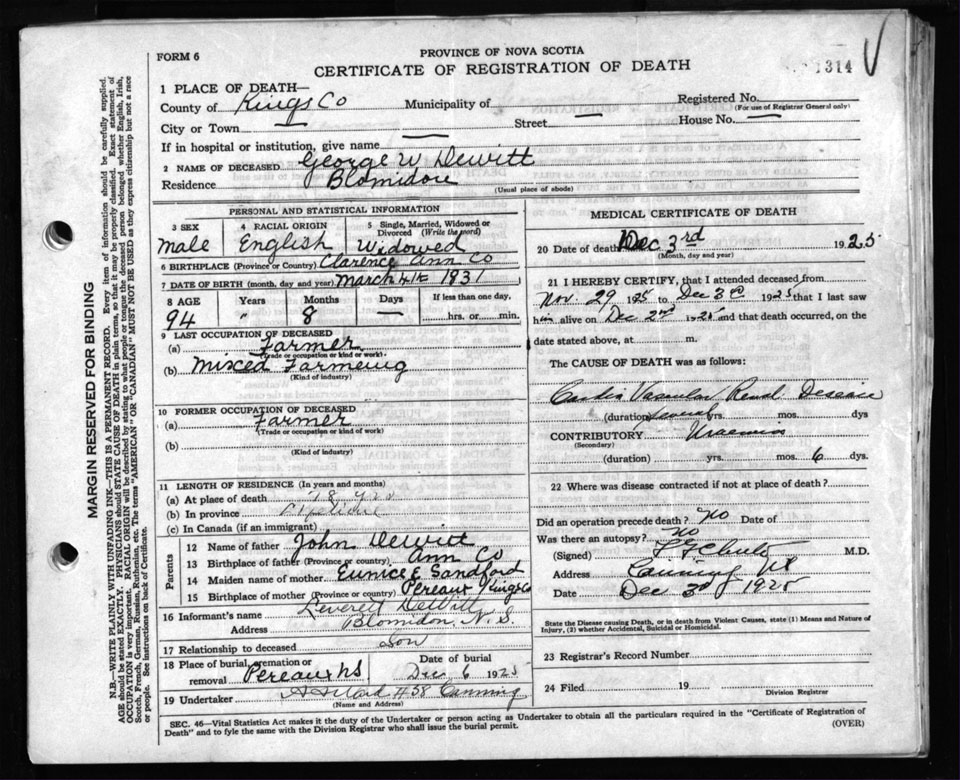 FORM 6
PROVINCE OF NOVA SCOTIA
CERTIFICATE OF REGISTRATION OF DEATH
1314 V
1 PLACE OF DEATH—
County of Kings Co Municipality of — Registered No.
(For use of Registrar General only)
City or Town — Street — House No. —
If in hospital or institution, give name —
2 NAME OF DECEASED George W Dewitt
Residence Blomidon
(Usual place of abode)
PERSONAL AND STATISTICAL INFORMATION
3 SEX Male
4 RACIAL ORIGIN English
5 Single, Married, Widowed or Divorced (Write the word) Widowed
6 BIRTHPLACE (Province or Country) Clarence Ann Co
7 DATE OF BIRTH (month, day and year) March 4th 1831
8 AGE Years Months Days If less than one day,
94 " 8 — hrs. or min.
9 LAST OCCUPATION OF DECEASED
(a) Farmer
(Trade or occupation or kind or work)
(b) Mixed Farmeing
(Kind of industry)
10 FORMER OCCUPATION OF DECEASED
(a) Farmer
(Trade or occupation or kind of work)
(b)
(Kind of industry)
11 LENGTH OF RESIDENCE (In years and months)
(a) At place of death 78 yrs
(b) In province
(c) In Canada (if an immigrant)
Parents
12 Name of father John Dewitt
13 Birthplace of father (Province or country) Ann Co
14 Maiden name of mother Eunice E Sandford
15 Birthplace of mother (Province or Country) Pereaux Kings Co
16 Informant's name Leverett DeWitt
Address Blomidon, N. S.
17 Relationship to deceased Son
18 Place of burial, cremation or removal Pereaux NS
Date of burial
Dec 6 1925
19 Undertaker H58 Canning
(Name and Address)
MEDICAL CERTIFICATE OF DEATH
20 Date of death Dec 3rd 1925
(Month, day and year)
21 I HEREBY CERTIFY, that I attended deceased from
Nov. 29 1925 to Dec 3 1925 that I last saw
him alive on Dec 2nd 1925 and that death occurred, on
date stated above, at — m.
The CAUSE OF DEATH was as follows:
Cardio Vascular Renal Desease
(duration) several yrs. mos. dys
CONTRIBUTORY Uraemia
(Secondary)
(duration) yrs. mos. 6 dys.
22 Where was disease contracted if not at place of death?
Did an operation precede death? No Date of
Was there an autopsy? No
(Signed) M.D.
Address Canning NS
Date Dec 3rd 1925
State the Disease causing Death, or in death from Violent Causes, state (1) Means and Nature of
Injury, (2) whether Accidental, Suicidal or Homicidal.
23 Registrar's Record Number
24 Filed 19
Division Registrar
SEC. 46—Vital Statistics Act makes it the duty of the Undertaker or person acting as Undertaker to obtain all the particulars required in the "Certificate of Registration of
Death" and to fyle the same with the Division Registrar who shall issue the burial permit. (OVER)
MARGIN RESERVED FOR BINDING
N.B.—WRITE PLAINLY WITH UNFADING INK—THIS IS A PERMANENT RECORD. Every item of information should be carefully supplied.
AGE should be stated EXACTLY. PHYSICIANS should STATE CAUSE OF DEATH in plain terms, so that it may be properly classified. Exact statement of
OCCUPATION is very important. RACIAL ORIGIN will be described by stating to what people or tongue the deceased person belonged whether English, Irish,
Scotch, French, German, Russian, Ruthenian, etc. The terms "AMERICAN" OR "CANADIAN" MUST NOT BE USED as they express citizenship but not a race
or people. See instructions on back of Certificate.